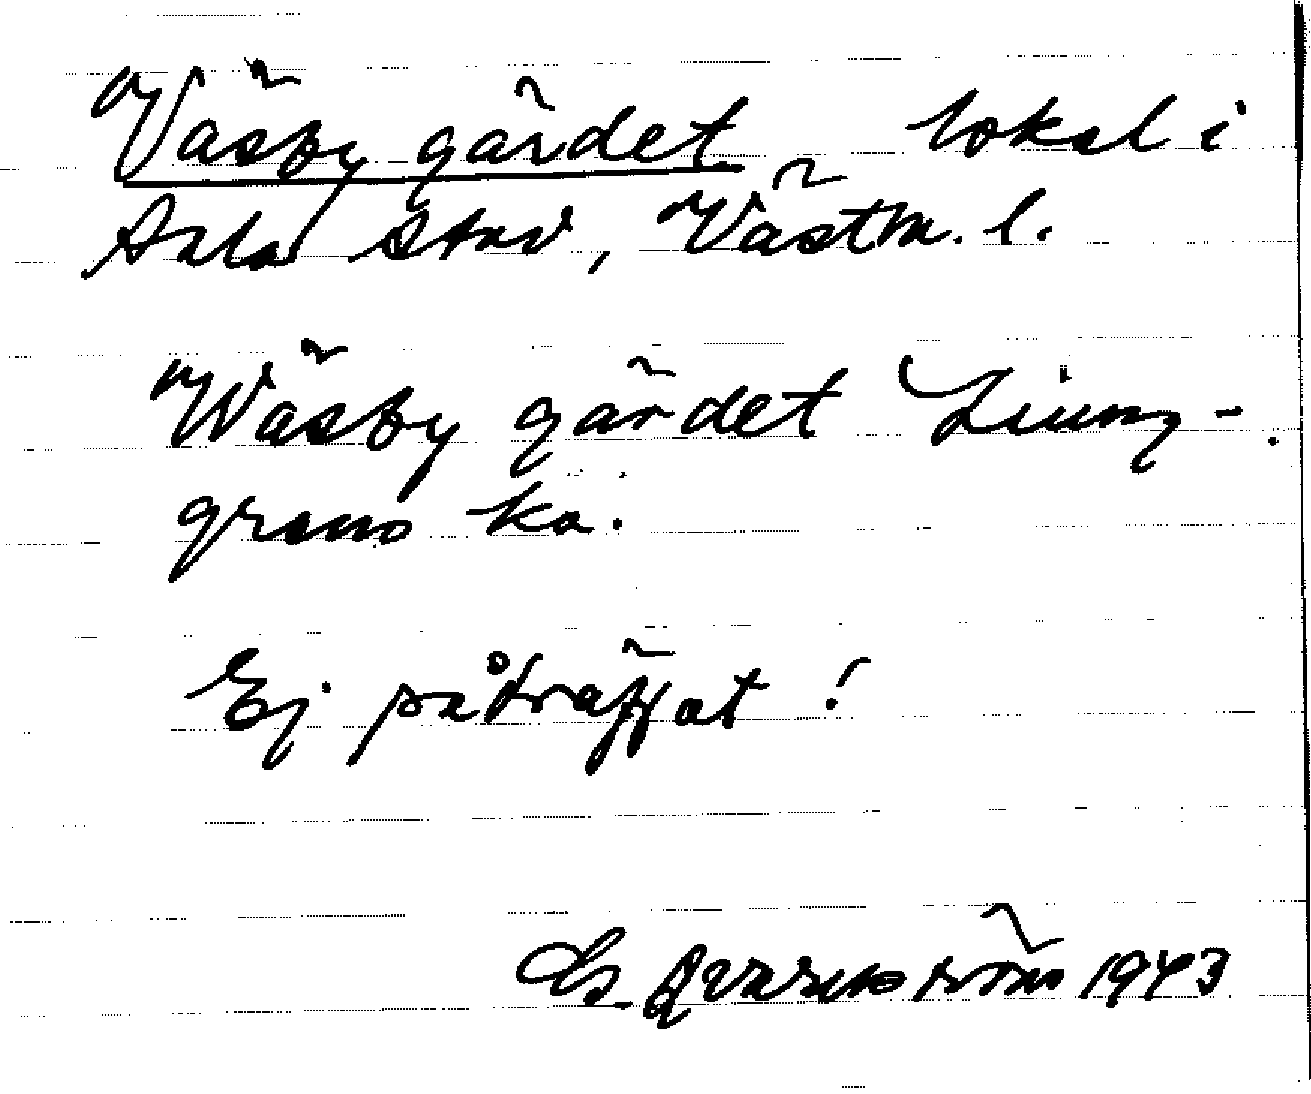 Väsby gärdet lokal i
Sala stad, Västm. l.
Wäsby gärdet Liung-
grens ka.
Ej påträffat !
Es. Qvarnström 1943